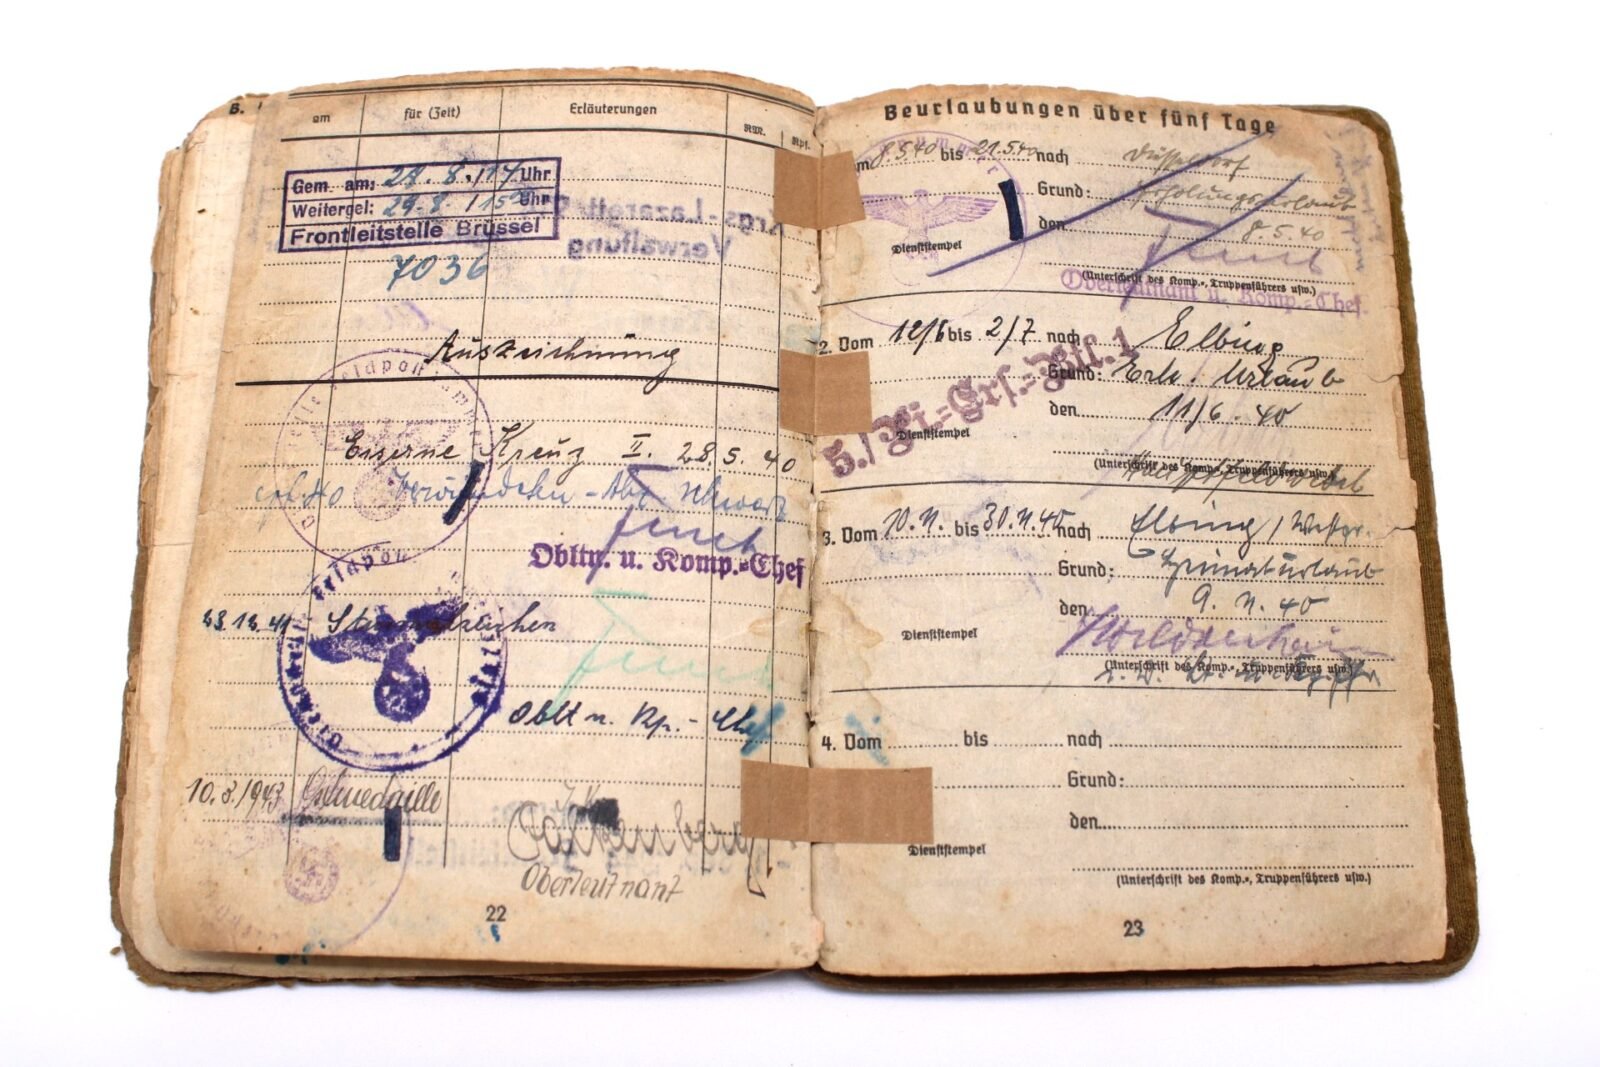 B.
am für (Zeit) Erläuterungen RM. Rpf.
Gem. am: 27. 8. /17 Uhr
Weitergel: 29.8. /15 Uhr
Frontleitstelle Brüssel
7036
Krgs.-Lazarett
Verwaltung
Auszeichnung
Eiserne Kreuz II. 28.5.40
Verwundeten-Abz. schwarz
Obltn. u. Komp.-Chef
28.12.41 Sturmabzeichen
Oblt u. Kp.- Chef
10.8./1943 Ostmedaille
Oberleutnant
22
Beurlaubungen über fünf Tage
8.5.40 bis 21.5.40 nach Düsseldorf
Grund: Erholungsurlaub
den 8.5.40
Dienststempel
(Unterschrift des Komp.-, Truppenführers usw.)
Oberleutnant u. Komp.-Chef
2. Vom 12/6 bis 2/7 nach Elbing
Grund: Erh. Urlaub
den 11/6.40
5./Pi.=Ers.=Btl. 1
Dienststempel
(Unterschrift des Komp.-, Truppenführers usw.)
Hauptfeldwebel
3. Vom 10.11. bis 30.11.40 nach Elbing / Westpr.
Grund: Heimaturlaub
den 9.11.40
Dienststempel
(Unterschrift des Komp.-, Truppenführers usw.)
4. Vom bis nach
Grund:
den
Dienststempel
(Unterschrift des Komp.-, Truppenführers usw.)
23